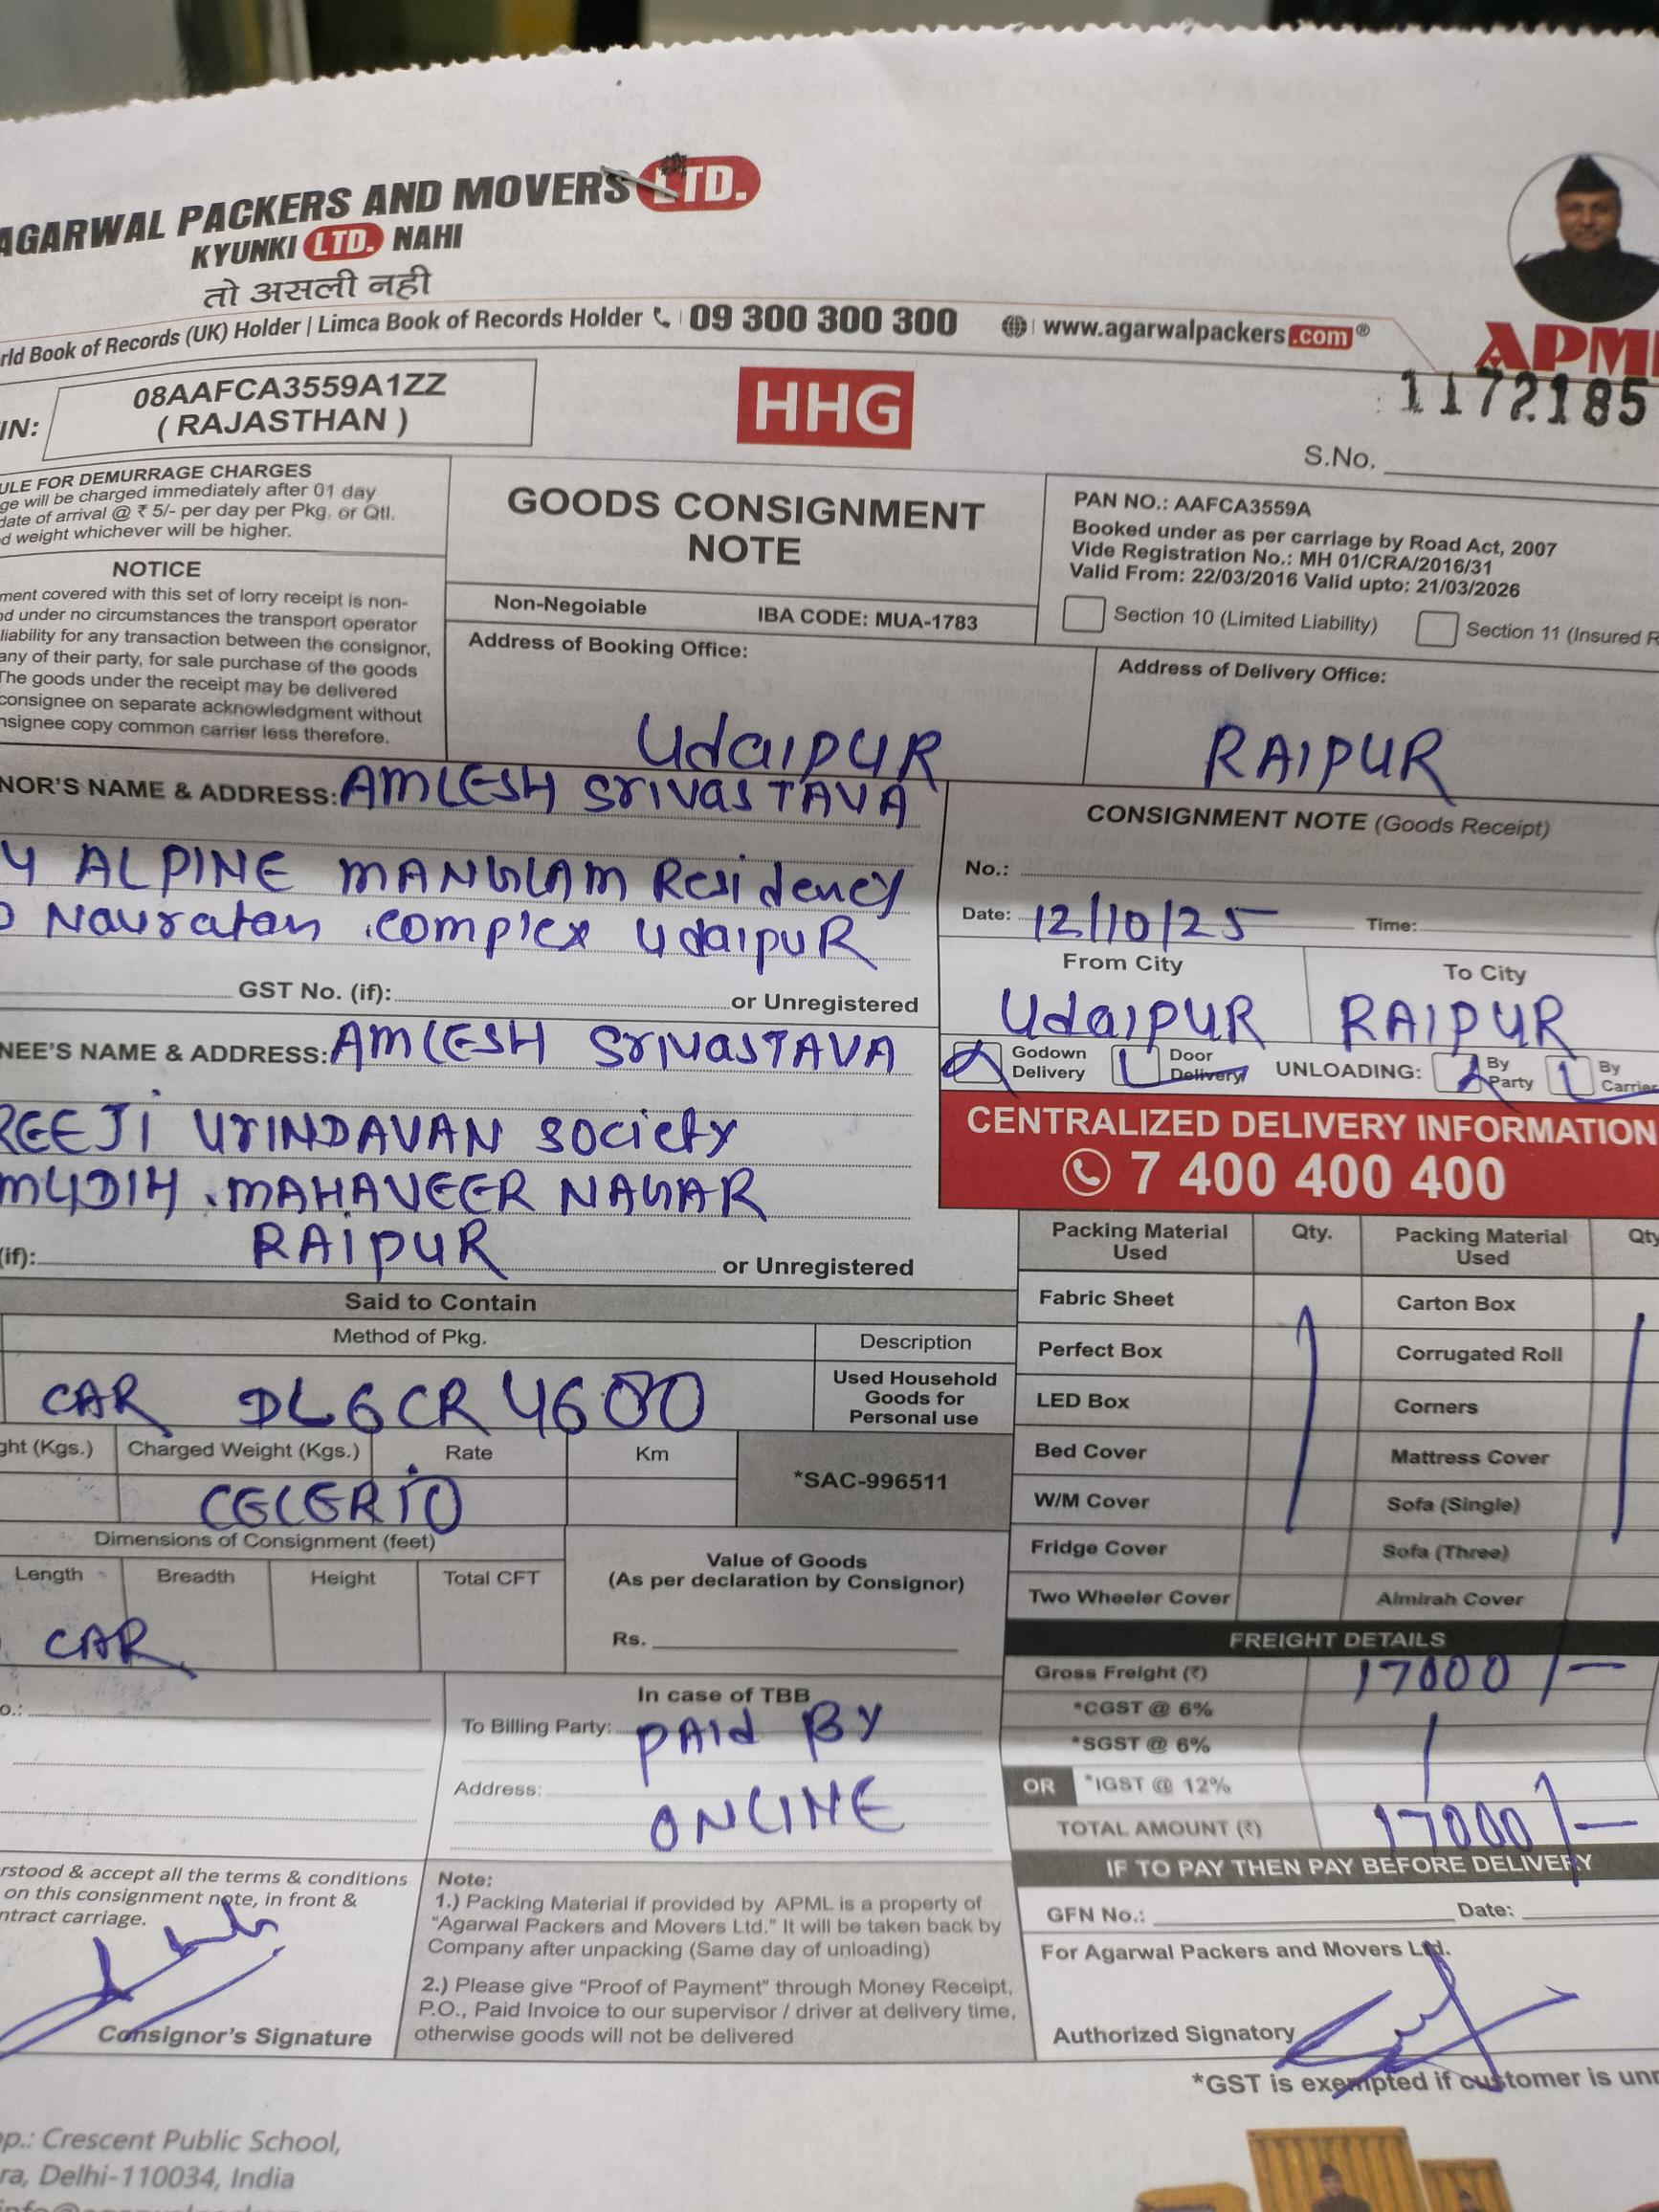 AGARWAL PACKERS AND MOVERS LTD.
KYUNKI LTD. NAHI
तो असली नही
rld Book of Records (UK) Holder | Limca Book of Records Holder 09 300 300 300 www.agarwalpackers.com®
APML
1172185
IN: 08AAFCA3559A1ZZ
( RAJASTHAN )
HHG
S.No.
ULE FOR DEMURRAGE CHARGES
ge will be charged immediately after 01 day
date of arrival @ ₹ 5/- per day per Pkg. or Qtl.
d weight whichever will be higher.
GOODS CONSIGNMENT
NOTE
PAN NO.: AAFCA3559A
Booked under as per carriage by Road Act, 2007
Vide Registration No.: MH 01/CRA/2016/31
Valid From: 22/03/2016 Valid upto: 21/03/2026
Section 10 (Limited Liability) Section 11 (Insured R
NOTICE
ment covered with this set of lorry receipt is non-
nd under no circumstances the transport operator
liability for any transaction between the consignor,
any of their party, for sale purchase of the goods
The goods under the receipt may be delivered
consignee on separate acknowledgment without
nsignee copy common carrier less therefore.
Non-Negoiable IBA CODE: MUA-1783
Address of Booking Office:
UdaipUR
Address of Delivery Office:
RAIPUR
NOR'S NAME & ADDRESS: AMLESH SrivasTAVA
4 ALPINE MANGLAM Residency
Navratan complex UdaipuR
GST No. (if): or Unregistered
CONSIGNMENT NOTE (Goods Receipt)
No.:
Date: 12/10/25 Time:
From City To City
UdaipUR RAIPUR
Godown Delivery Door Delivery UNLOADING: By Party By Carrie
NEE'S NAME & ADDRESS: AMLESH SrivasTAVA
REEJI VrINDAVAN Society
MAHAVEER NAGAR
RAIPUR
(if): or Unregistered
CENTRALIZED DELIVERY INFORMATION
7 400 400 400
Said to Contain
Method of Pkg. Description
CAR DL6CR4600
Used Household
Goods for
Personal use
ght (Kgs.) Charged Weight (Kgs.) Rate Km
CELERIO
*SAC-996511
Dimensions of Consignment (feet)
Length Breadth Height Total CFT
CAR
Value of Goods
(As per declaration by Consignor)
Rs.
Packing Material Used Qty. Packing Material Used Qty
Fabric Sheet Carton Box
Perfect Box Corrugated Roll
LED Box Corners
Bed Cover Mattress Cover
W/M Cover Sofa (Single)
Fridge Cover Sofa (Three)
Two Wheeler Cover Almirah Cover
FREIGHT DETAILS
Gross Freight (₹) 17000/-
*CGST @ 6%
*SGST @ 6%
OR *IGST @ 12%
TOTAL AMOUNT (₹) 17000/-
IF TO PAY THEN PAY BEFORE DELIVERY
o.:
In case of TBB
To Billing Party: PAId BY
Address: ONLINE
rstood & accept all the terms & conditions
on this consignment note, in front &
ntract carriage.
Consignor's Signature
Note:
1.) Packing Material if provided by APML is a property of
"Agarwal Packers and Movers Ltd." It will be taken back by
Company after unpacking (Same day of unloading)
2.) Please give "Proof of Payment" through Money Receipt,
P.O., Paid Invoice to our supervisor / driver at delivery time,
otherwise goods will not be delivered
GFN No.: Date:
For Agarwal Packers and Movers Ltd.
Authorized Signatory
*GST is exempted if customer is unr
pp.: Crescent Public School,
ra, Delhi-110034, India